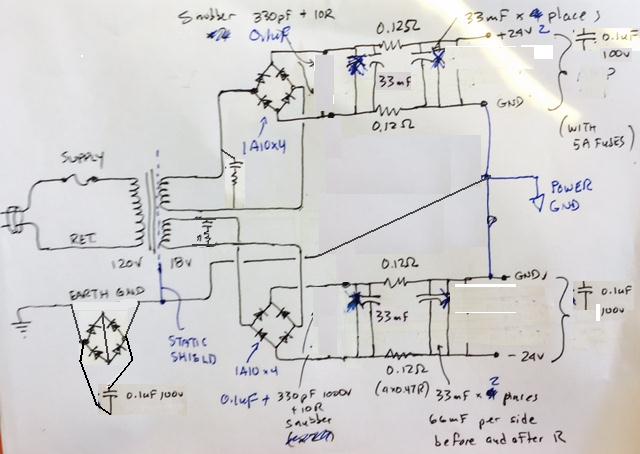 Snubber 330pF + 10R
0.1uF
33mF × places
2
0.12Ω
+24V
0.1uF
100V
?
33mF
GND
0.12Ω
(WITH
5A FUSES)
1A10x4
SUPPLY
POWER
GND
RET.
120V
18V
EARTH GND
STATIC
SHIELD
0.1uF 100V
0.12Ω
GND
0.1uF
100V
33mF
1A10x4
-24V
0.12Ω
(4x0.47R)
0.1uF + 330pF 1000V
+ 10R
Snubber
2
33mF × places
66mF per side
before and after R